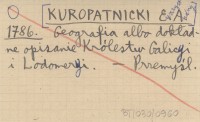 KUROPATNICKI E. A.
1786. Geografia albo dokład-
ne opisanie Królestw Galicyi
i Lodomeryi. — Przemyśl.